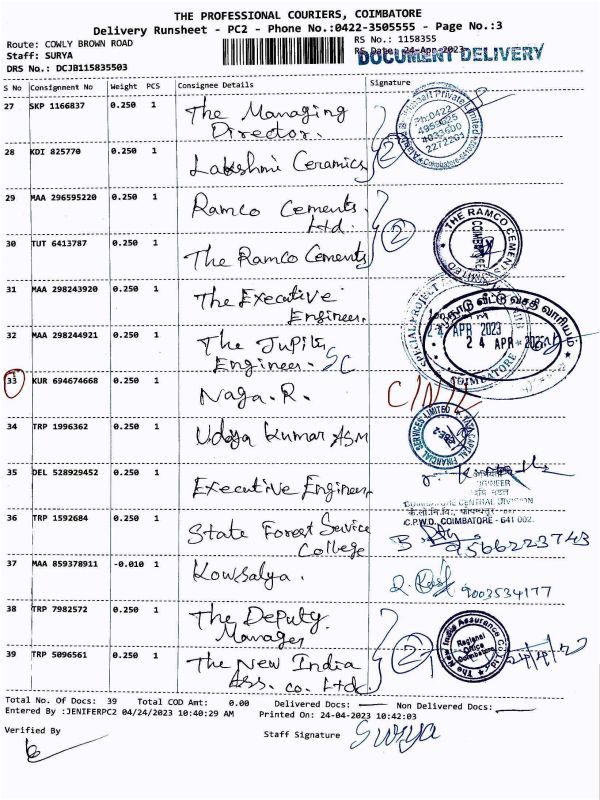 THE PROFESSIONAL COURIERS, COIMBATORE
Delivery Runsheet - PC2 - Phone No.:0422-3505555 - Page No.:3
Route: COWLY BROWN ROAD
RS No.: 1158355
Staff: SURYA
RS Date: 24-Apr-2023
DOCUMENT DELIVERY
DRS No.: DCJB115835503
S No Consignment No Weight PCS Consignee Details Signature
27 SKP 1166837 0.250 1 The Managing Director.
Private Limited
Ph:0422
4952025
4033600
2272201
Coimbatore-641
28 KDI 825770 0.250 1 Lakshmi Ceramics 2
29 MAA 296595220 0.250 1 Ramco Cements Ltd. 2
30 TUT 6413787 0.250 1 The Ramco Cements
THE RAMCO CEMENTS LIMITED
31 MAA 298243920 0.250 1 The Executive Engineer.
SPECIAL PROJECT
நாடு வீட்டு வசதி வாரியம்
APR 2023
24 APR 2023
COIMBATORE
32 MAA 298244921 0.250 1 The Engineer. SC
33 KUR 694674668 0.250 1 Naga.R.
34 TRP 1996362 0.250 1 Udaya Kumar ASM
TATA CAPITAL FINANCIAL SERVICES LIMITED
35 DEL 528929452 0.250 1 Executive Engineer
COIMBATORE CENTRAL DIVISION
C.P.W.D. COIMBATORE - 641 002.
36 TRP 1592684 0.250 1 State Forest Service College
9566223743
37 MAA 859378911 -0.010 1 Kowsalya.
9003534177
38 TRP 7982572 0.250 1 The Deputy Manager 2
39 TRP 5096561 0.250 1 The New India Ass. co. Ltd.
The New India Assurance Co. Ltd.
Regional Office
Coimbatore
Total No. Of Docs: 39 Total COD Amt: 0.00 Delivered Docs: Non Delivered Docs:
Entered By :JENIFERPC2 04/24/2023 10:40:29 AM Printed On: 24-04-2023 10:42:03
Verified By
Staff Signature Surya